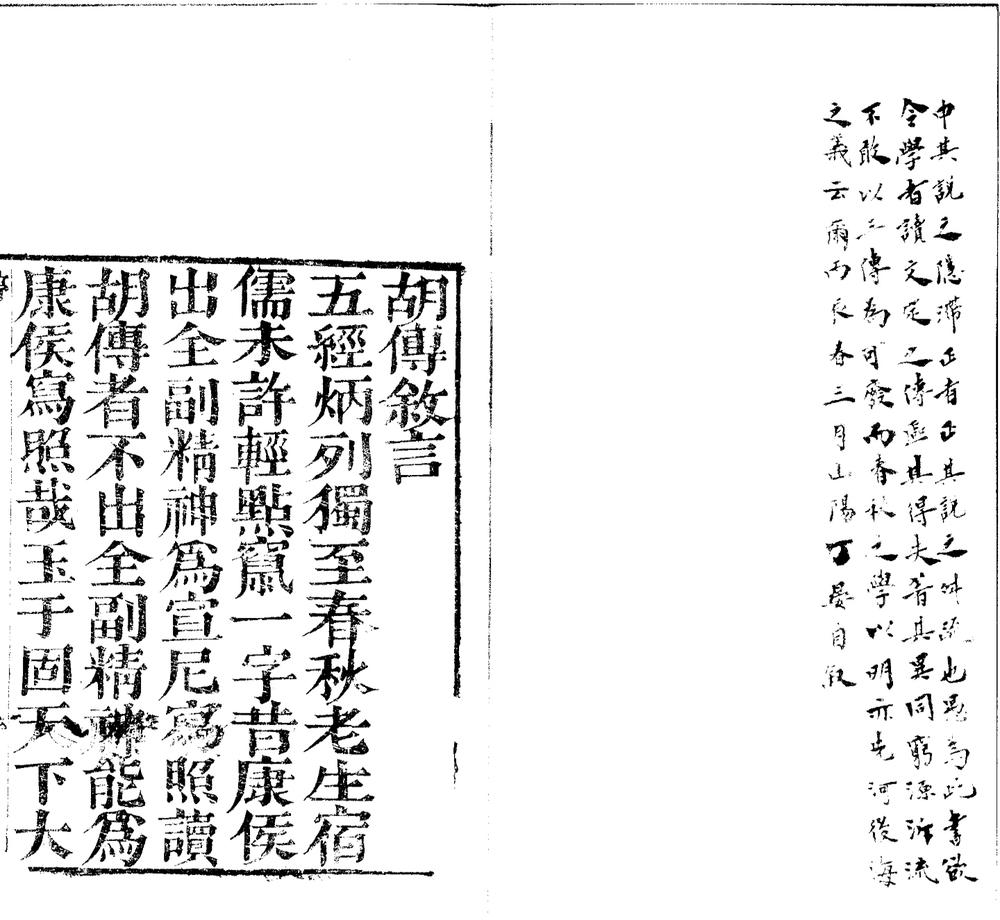 申其說之隱滯正者正其說之舛疏也為此書欲
令學者讀文定之傳其得失著其異同窮源泝流
不敢以三傳為可廢而春秋之學以明亦先河後海
之義云爾丙辰春三月山陽丁晏自敘
胡傳敘言
五經炳列獨至春秋老生宿
儒未許輕點竄一字昔康侯
出全副精神為宣尼寫照讀
胡傳者不出全副精神能為
康侯寫照哉玉于固天下大